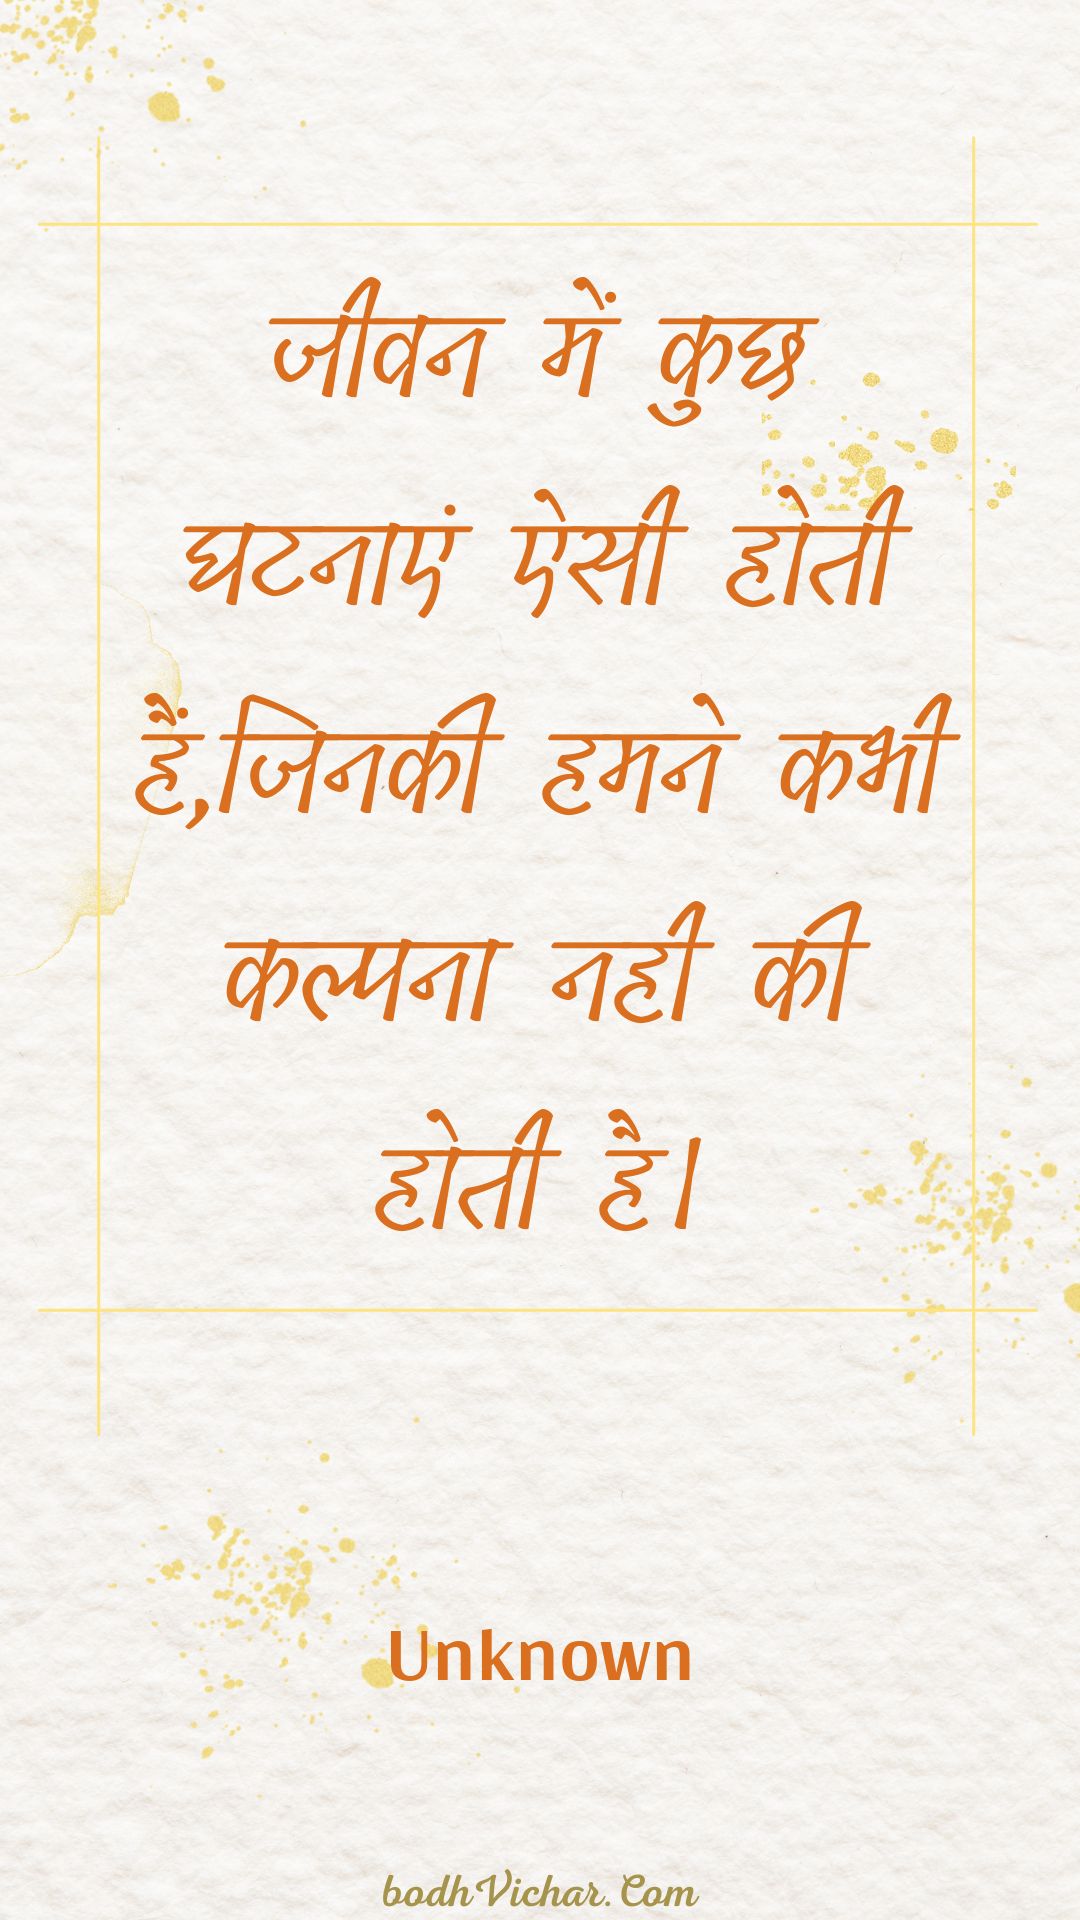 जीवन में कुछ
घटनाएं ऐसी होती
हैं,जिनकी हमने कभी
कल्पना नही की
होती है।
Unknown
bodhVichar.Com